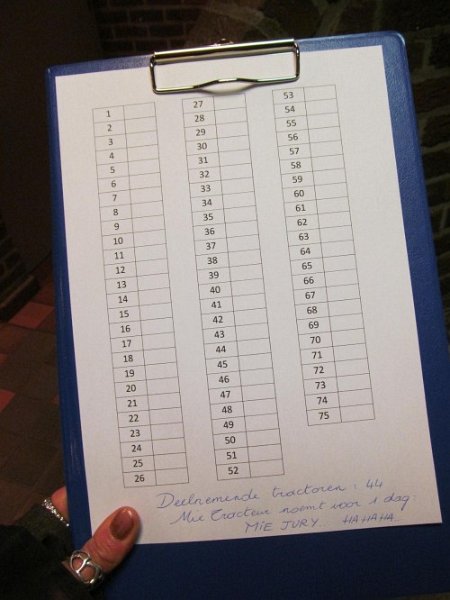 1
2
3
4
5
6
7
8
9
10
11
12
13
14
15
16
17
18
19
20
21
22
23
24
25
26
27
28
29
30
31
32
33
34
35
36
37
38
39
40
41
42
43
44
45
46
47
48
49
50
51
52
53
54
55
56
57
58
59
60
61
62
63
64
65
66
67
68
69
70
71
72
73
74
75
Deelnemende tractoren : 44
Mie Tracteur noemt voor 1 dag:
MIE JURY. HAHAHA